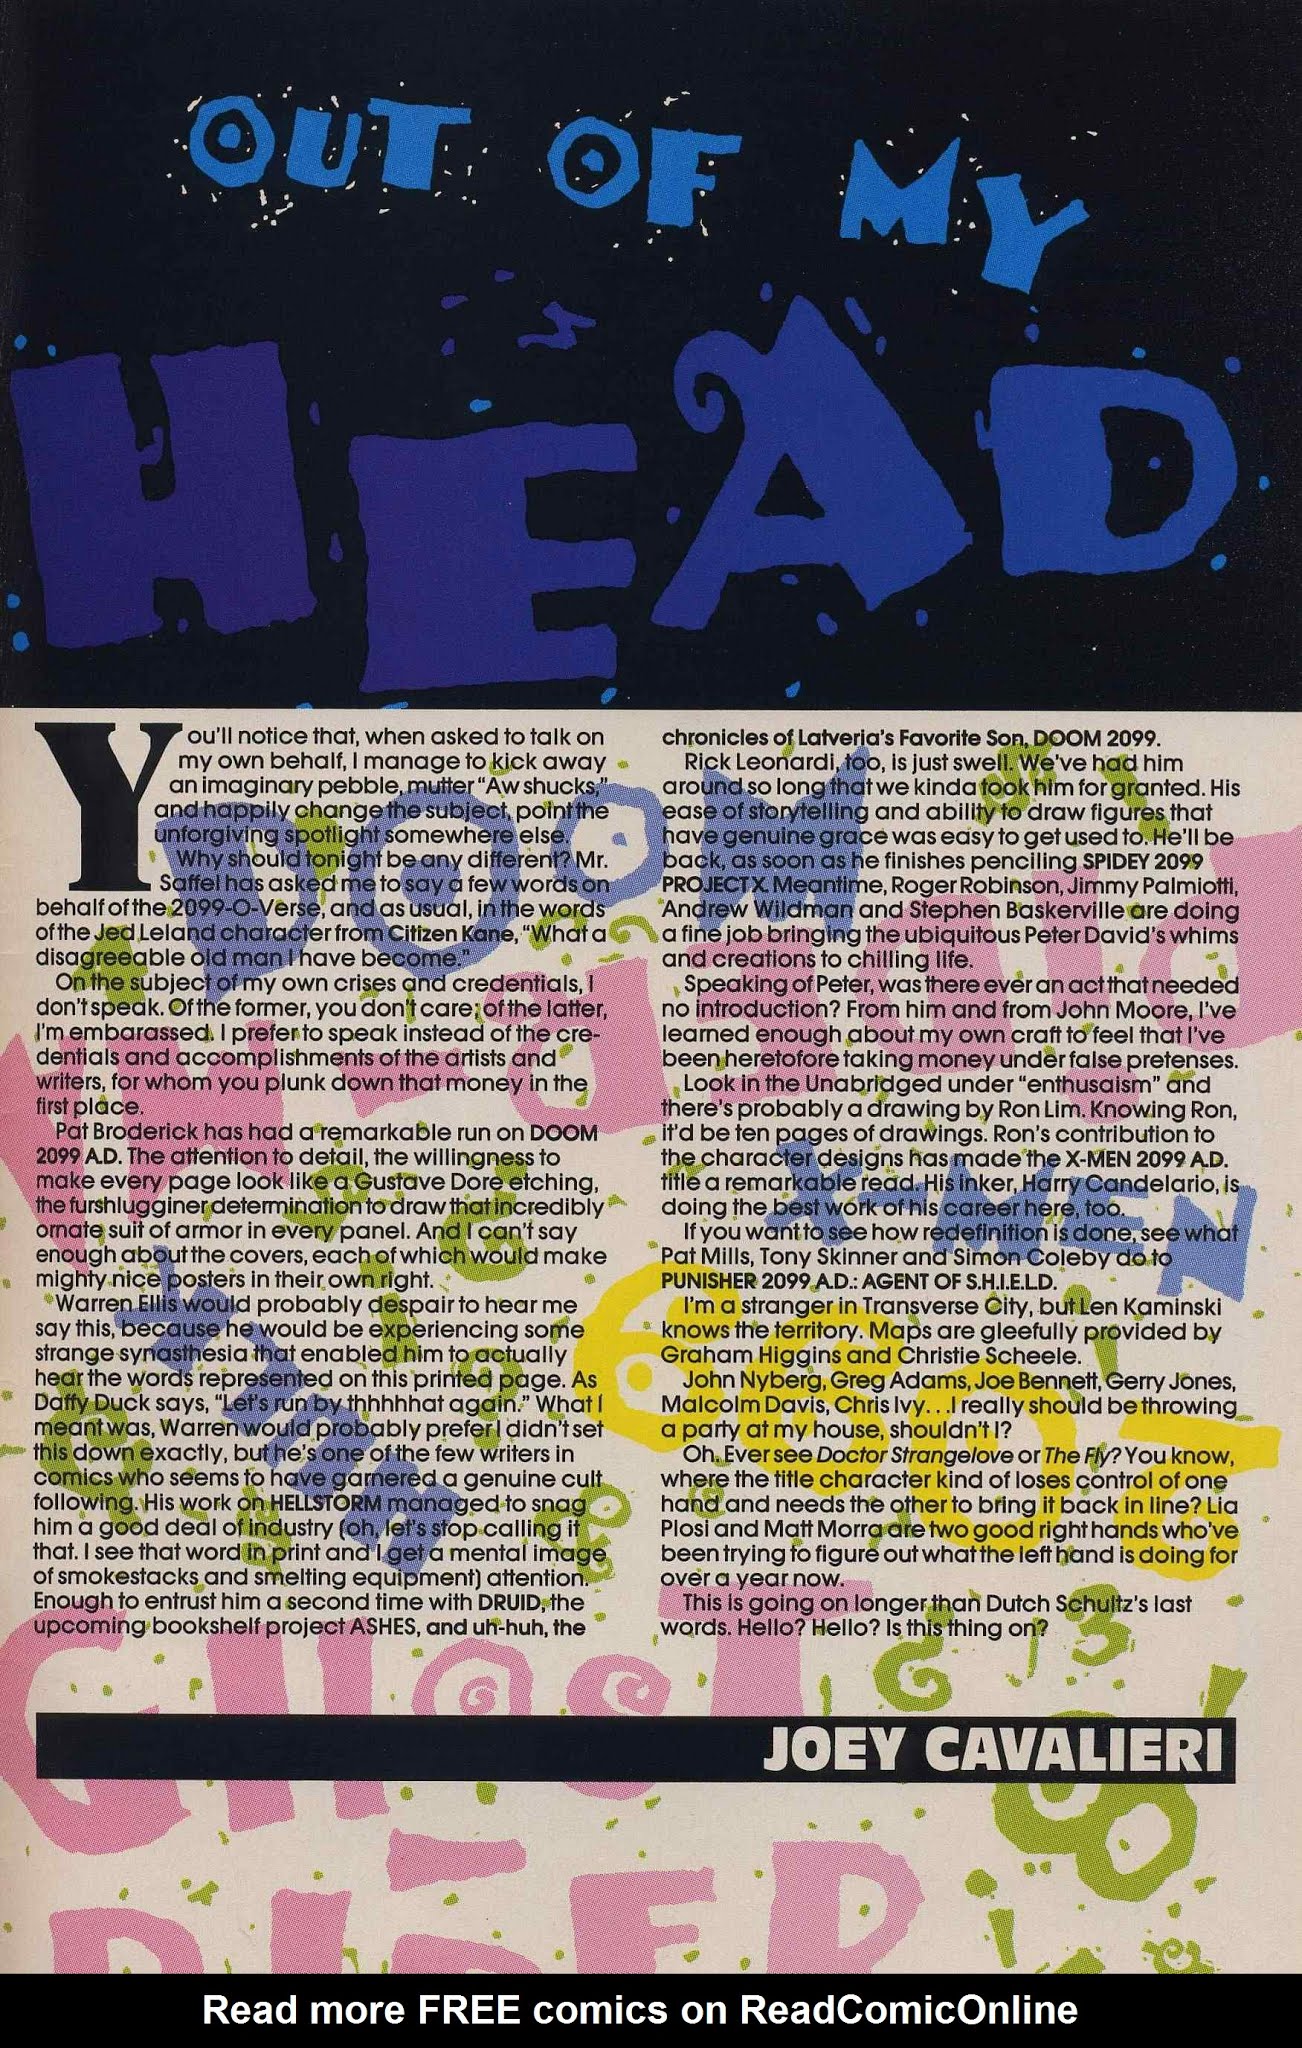 OUT OF MY
HEAD
You'll notice that, when asked to talk on
my own behalf, I manage to kick away
an imaginary pebble, mutter “Aw shucks,”
and happily change the subject, point the
unforgiving spotlight somewhere else.
Why should tonight be any different? Mr.
Saffel has asked me to say a few words on
behalf of the 2099-O-Verse, and as usual, in the words
of the Jed Leland character from Citizen Kane, “What a
disagreeable old man I have become.”
On the subject of my own crises and credentials, I
don't speak. Of the former, you don't care; of the latter,
I'm embarassed. I prefer to speak instead of the cre-
dentials and accomplishments of the artists and
writers, for whom you plunk down that money in the
first place.
Pat Broderick has had a remarkable run on DOOM
2099 A.D. The attention to detail, the willingness to
make every page look like a Gustave Dore etching,
the furshlugginer determination to draw that incredibly
ornate suit of armor in every panel. And I can't say
enough about the covers, each of which would make
mighty nice posters in their own right.
Warren Ellis would probably despair to hear me
say this, because he would be experiencing some
strange synasthesia that enabled him to actually
hear the words represented on this printed page. As
Daffy Duck says, “Let's run by thhhhhat again.” What I
meant was, Warren would probably prefer I didn't set
this down exactly, but he's one of the few writers in
comics who seems to have garnered a genuine cult
following. His work on HELLSTORM managed to snag
him a good deal of industry (oh, let's stop calling it
that. I see that word in print and I get a mental image
of smokestacks and smelting equipment) attention.
Enough to entrust him a second time with DRUID, the
upcoming bookshelf project ASHES, and uh-huh, the
chronicles of Latveria's Favorite Son, DOOM 2099.
Rick Leonardi, too, is just swell. We've had him
around so long that we kinda took him for granted. His
ease of storytelling and ability to draw figures that
have genuine grace was easy to get used to. He'll be
back, as soon as he finishes penciling SPIDEY 2099
PROJECT X. Meantime, Roger Robinson, Jimmy Palmiotti,
Andrew Wildman and Stephen Baskerville are doing
a fine job bringing the ubiquitous Peter David's whims
and creations to chilling life.
Speaking of Peter, was there ever an act that needed
no introduction? From him and from John Moore, I've
learned enough about my own craft to feel that I've
been heretofore taking money under false pretenses.
Look in the Unabridged under “enthusaism” and
there's probably a drawing by Ron Lim. Knowing Ron,
it'd be ten pages of drawings. Ron's contribution to
the character designs has made the X-MEN 2099 A.D.
title a remarkable read. His inker, Harry Candelario, is
doing the best work of his career here, too.
If you want to see how redefinition is done, see what
Pat Mills, Tony Skinner and Simon Coleby do to
PUNISHER 2099 A.D.: AGENT OF S.H.I.E.L.D.
I'm a stranger in Transverse City, but Len Kaminski
knows the territory. Maps are gleefully provided by
Graham Higgins and Christie Scheele.
John Nyberg, Greg Adams, Joe Bennett, Gerry Jones,
Malcolm Davis, Chris Ivy. . .I really should be throwing
a party at my house, shouldn't I?
Oh. Ever see Doctor Strangelove or The Fly? You know,
where the title character kind of loses control of one
hand and needs the other to bring it back in line? Lia
Plosi and Matt Morra are two good right hands who've
been trying to figure out what the left hand is doing for
over a year now.
This is going on longer than Dutch Schultz's last
words. Hello? Hello? Is this thing on?
JOEY CAVALIERI
DOOM
X-MEN
GHOST
RIDER
Read more FREE comics on ReadComicOnline